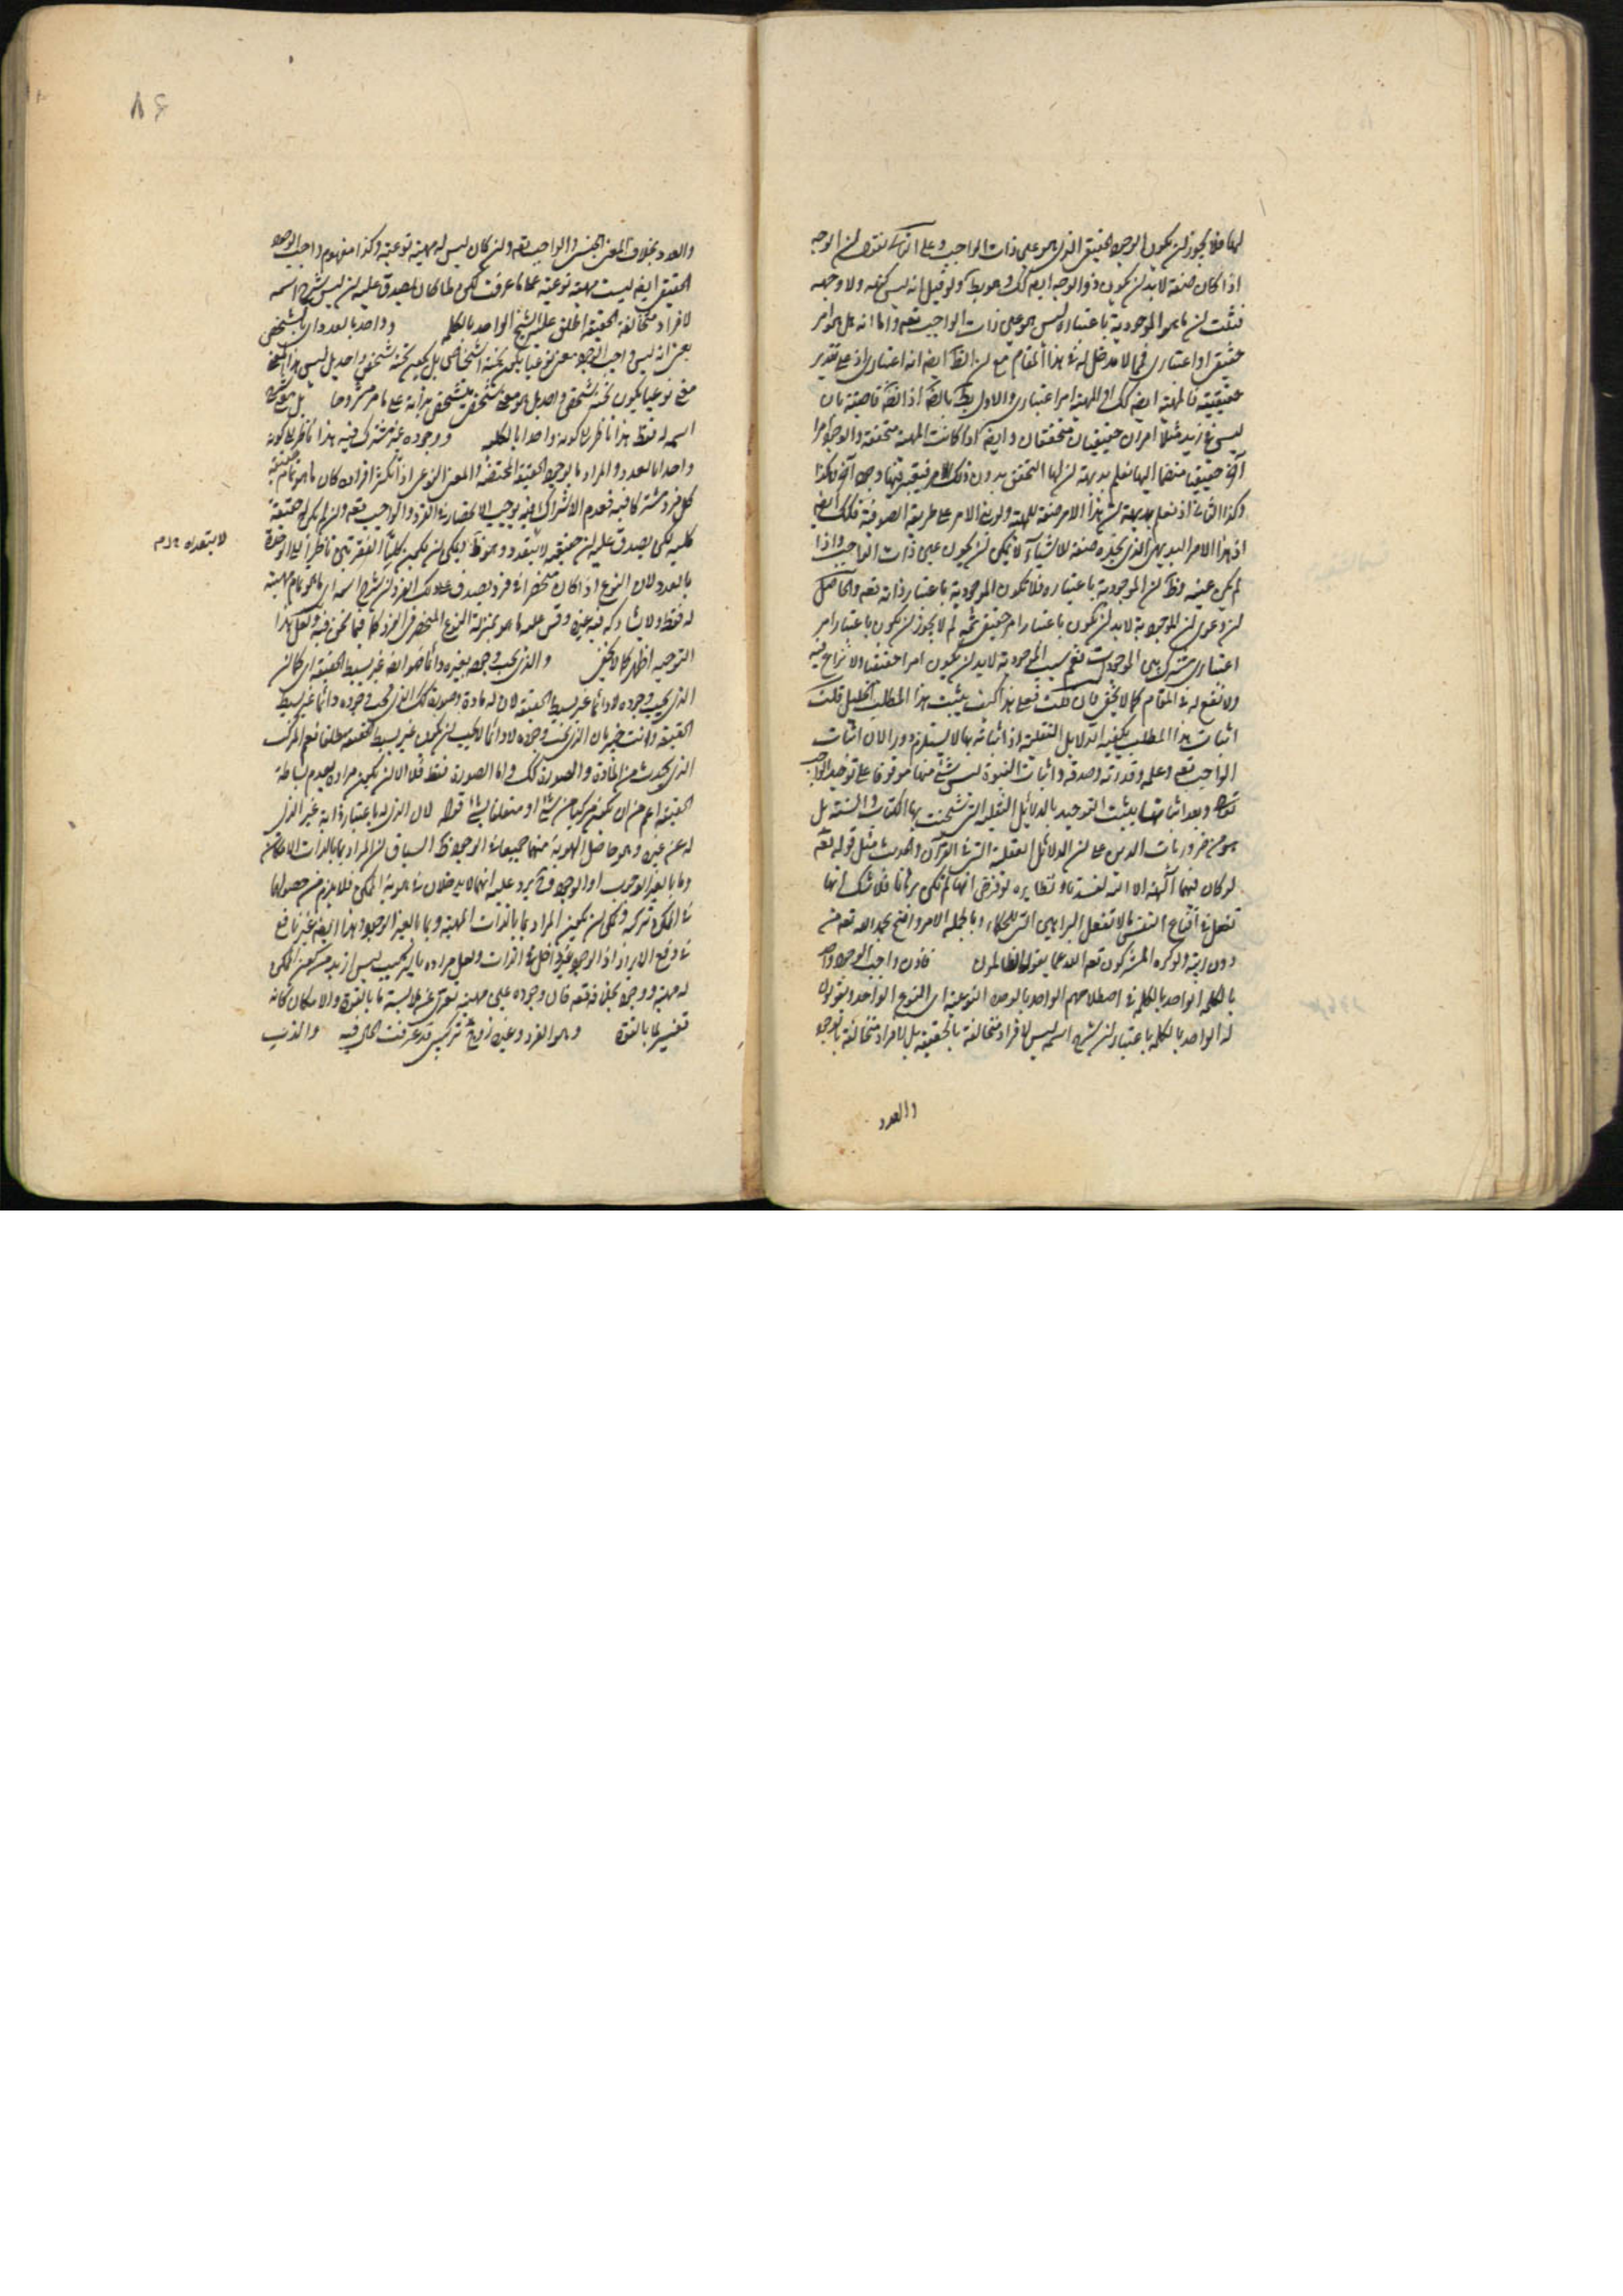 لها فلا يجوز ان يكون الوجود الحقيقى الذى هو عين ذات الواجب وعلى الثانى نقول ان الوجه
اذا كان صفة لا بد ان يكون ذو الوجه ايضا كك وهو بط ولو قيل انه ليس كنهه ولا وجهه
فثبت ان ما به الموجودية باعتباره ليس هو عين ذات الواجب تعه واما انه هل هو امر
حقيقى او اعتبارى فما لا مدخل له فى هذا المقام مع ان الظ ايضا انه اعتبارى اذ على تقدير
حقيقيته فالمهية ايضا كك او المهية امر اعتبارى والاول بط بالضرورة اذ الضرورة قاضية بان
ليس فى زيد مثلا امران حقيقيان متحققان وايضا اذا كانت المهية متحققة والوجود امرا
آخر حقيقيا منضما اليها نعلم بديهة ان لها التحقق بدون ذلك الامر فيتحقق فيها وجود آخر هكذا
وكذا الثانى اذ نعلم بديهة ان هذا الامر صفة للمهية ولو بنى الامر على طريقة الصوفية فلك ايضا
اذ هذا الامر البديهى الذى نجده صفة للاشياء لا يمكن ان يكون عين ذات الواجب واذا
لم يكن عينه فظ ان الموجودية باعتباره فلا تكون الموجودية باعتبار ذاته تعه والحاصل
ان دعوى ان الموجودية لا بد ان تكون باعتبار امر حقيقى ثمه لم لا يجوز ان تكون باعتبار امر
اعتبارى مشترك بين الموجودات نعم سبب الموجودية لا بد ان يكون امرا حقيقيا ولا نزاع فيه
ولا نفع له فى المقام كما لا يخفى فان قلت فعلى هذا كيف يثبت هذا المطلب الجليل قلت
اثبات هذا المطلب يكفيه الدلايل النقلية اذ اثباته بها لا يستلزم دورا لان اثبات
الواجب تعه وعلمه وقدرته وصدقه واثبات النبوة ليس شئ منها موقوفا على توحيد الواجب
تعه وبعد اثباتها يثبت التوحيد بالدلائل النقلية التى شحنت بها الكتاب والسنة بل
هو من ضروريات الدين على ان الدلائل العقلية التى فى القرآن والحديث مثل قوله تعه
لو كان فيهما آلهة الا الله لفسدتا ونظايره لو فرض انها لم تكن برهانا فلا شك انها
تفعل فى اقناع النفس ما لا تفعل البراهين التى للحكماء وبالجملة الامر واضح بحمد الله تعه من
دون ريبة ولو كره المشركون تعه الله عما يقول الظالمون فاذن واجب الوجود واحد
بالكلمة الواحد بالكلمة فى اصطلاحهم الواحد بالوحدة النوعية اى النوع الواحد ويقولون
له الواحد بالكلمة باعتبار ان شرح اسمه ليس لافراد متخالفة بالحقيقة بل لافراد متخالفة بالوجود
والعدد
والعدد بخلاف المعنى الجنسى والواجب تعه وان كان ليس له مهية نوعية وكذا مفهوم واجب الوجود
الحقيقى ايضا ليست مهية نوعية على ما عرفت لكن لما كان يصدق عليه ان ليس شرح اسمه
لافراد متخالفة الحقيقة اطلق عليه الشيخ الواحد بالكلمة وواحد بالعدد اى بالشخص
يعنى انه ليس واجب الوجود معنى نوعيا يكون تحته اشخاص بل يكون تحته شخص واحد بل ليس هذا المعنى
معنى نوعيا يكون تحته شخص واحد بل هو معنى متشخص بتشخص بذاته على ما مر مشروحا بل معنى شرح
اسمه له فقط هذا ناظر الى كونه واحدا بالكلمة ووجوده غير مشترك فيه هذا ناظر الى كونه
واحدا بالعدد والمراد بالوجود الحقيقة المختصة والمعنى النوعى اذا تكثر افراده كان ما هو تمام حقيقة
كل فرد مشتركا فيه فعدم الاشتراك فيه يوجب الانحصار فى الفرد والواجب تعه وان لم يكن له حقيقة
كلية لكن يصدق عليه ان حقيقته لا تتعدد وهو ظ ويمكن ان يكون كلتا الفقرتين ناظرا الى الوحدة
لا بتعدده
بالعدد لان النوع اذا كان منحصرا فى فرد يصدق على ذلك الفرد ان شرح اسمه اى ما هو تمام مهيته
له فقط ولا يشاركه فيه غيره وقس عليه ما هو بمنزلة النوع المنحصر فى الفرد كما فيما نحن فيه ولعل هذا
التوجيه اظهر كما لا يخفى والذى يجب وجوده بغيره دائما فهو ايضا غير بسيط الحقيقة اى كما ان
الذى يجب وجوده لا دائما غير بسيط الحقيقة لان له مادة وصورة كك الذى يجب وجوده دائما غير بسيط
الحقيقة وانت خبير بان الذى يجب وجوده لا دائما لا يجب ان يكون غير بسيط الحقيقة مطلقا نعم المركب
الذى يحدث من المادة والصورة كك واما الصورة فقط فلا الا ان يكون مراده بعدم بساطة
الحقيقة اعم من ان يكون مركبا من شئ او متعلقا بشئ قوله لان الذى له باعتبار ذاته غير الذى
له عن غيره وهو حاصل الهوية منهما جميعا فى الوجود ظ السياق ان المراد بما بالذات الامكان
وما بالغير الوجوب او الوجود وح يرد عليه انهما لا يدخلان فى هوية الممكن فلا يلزم من حصولهما
فى الممكن تركبه ويمكن ان يكون المراد بما بالذات المهية وبما بالغير الوجود وهذا ايضا غير نافع
فى دفع الايراد اذ الوجود غير داخل فى الذات ولعل مراده بالتركيب ليس ازيد من كون الممكن
له مهية ووجود بخلافه تعه فان وجوده عين مهيته تعرى عن ملابسة ما بالقوة والامكان كانه
تفسير لما بالقوة وهو الفرد وغيره زوج تركيبى قد عرفت الحال فيه والذى